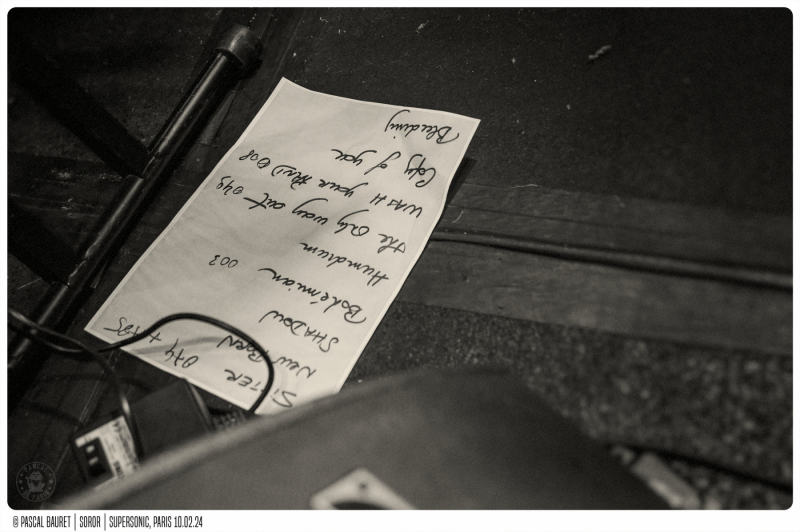 SiSTER 074 + +35
NEW BORN
SHADOW
Bohémian 003
Humdrum
the Only way out 049
WASH your HAND 008
Copy of you
Bleeding
@ PASCAL BAURET | SOROR | SUPERSONIC, PARIS 10.02.24